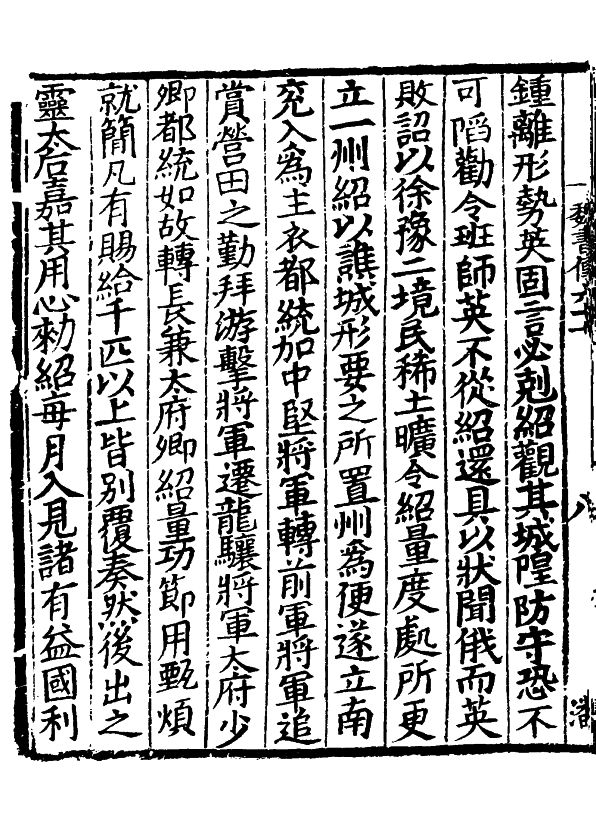 魏書傳六十七
八
潘
鍾離形勢英固言必剋紹觀其城隍防守恐不
可陷勸令班師英不從紹還具以狀聞俄而英
敗詔以徐豫二境民稀土曠令紹量度處所更
立一州紹以譙城形要之所置州爲便遂立南
兗入爲主衣都統加中堅將軍轉前軍將軍追
賞營田之勤拜游擊將軍遷龍驤將軍太府少
卿都統如故轉長兼太府卿紹量功節用甄煩
就簡凡有賜給千匹以上皆別覆奏然後出之
靈太后嘉其用心勑紹每月入見諸有益國利